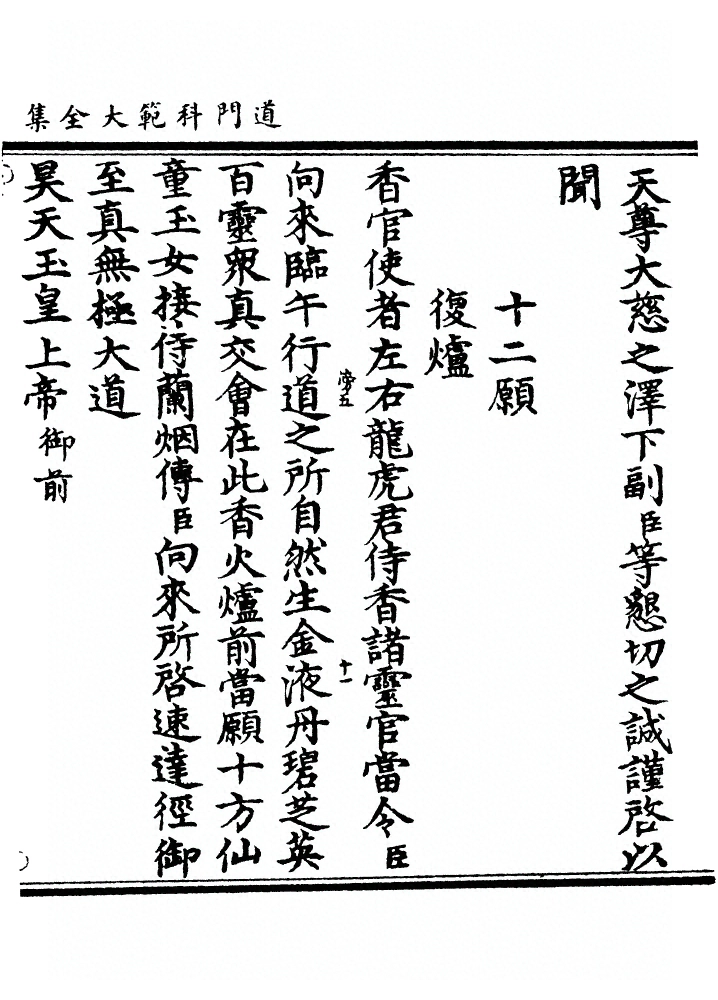 道門科範大全集
天尊大慈之澤下副臣等懇切之誠謹啓以
聞
十二願
復爐
香官使者左右龍虎君侍香諸靈官當令臣
向來臨午行道之所自然生金液丹碧芝英
百靈眾真交會在此香火爐前當願十方仙
童玉女接侍蘭烟傳臣向來所啓速達徑御
至真無極大道
昊天玉皇上帝御前
十一